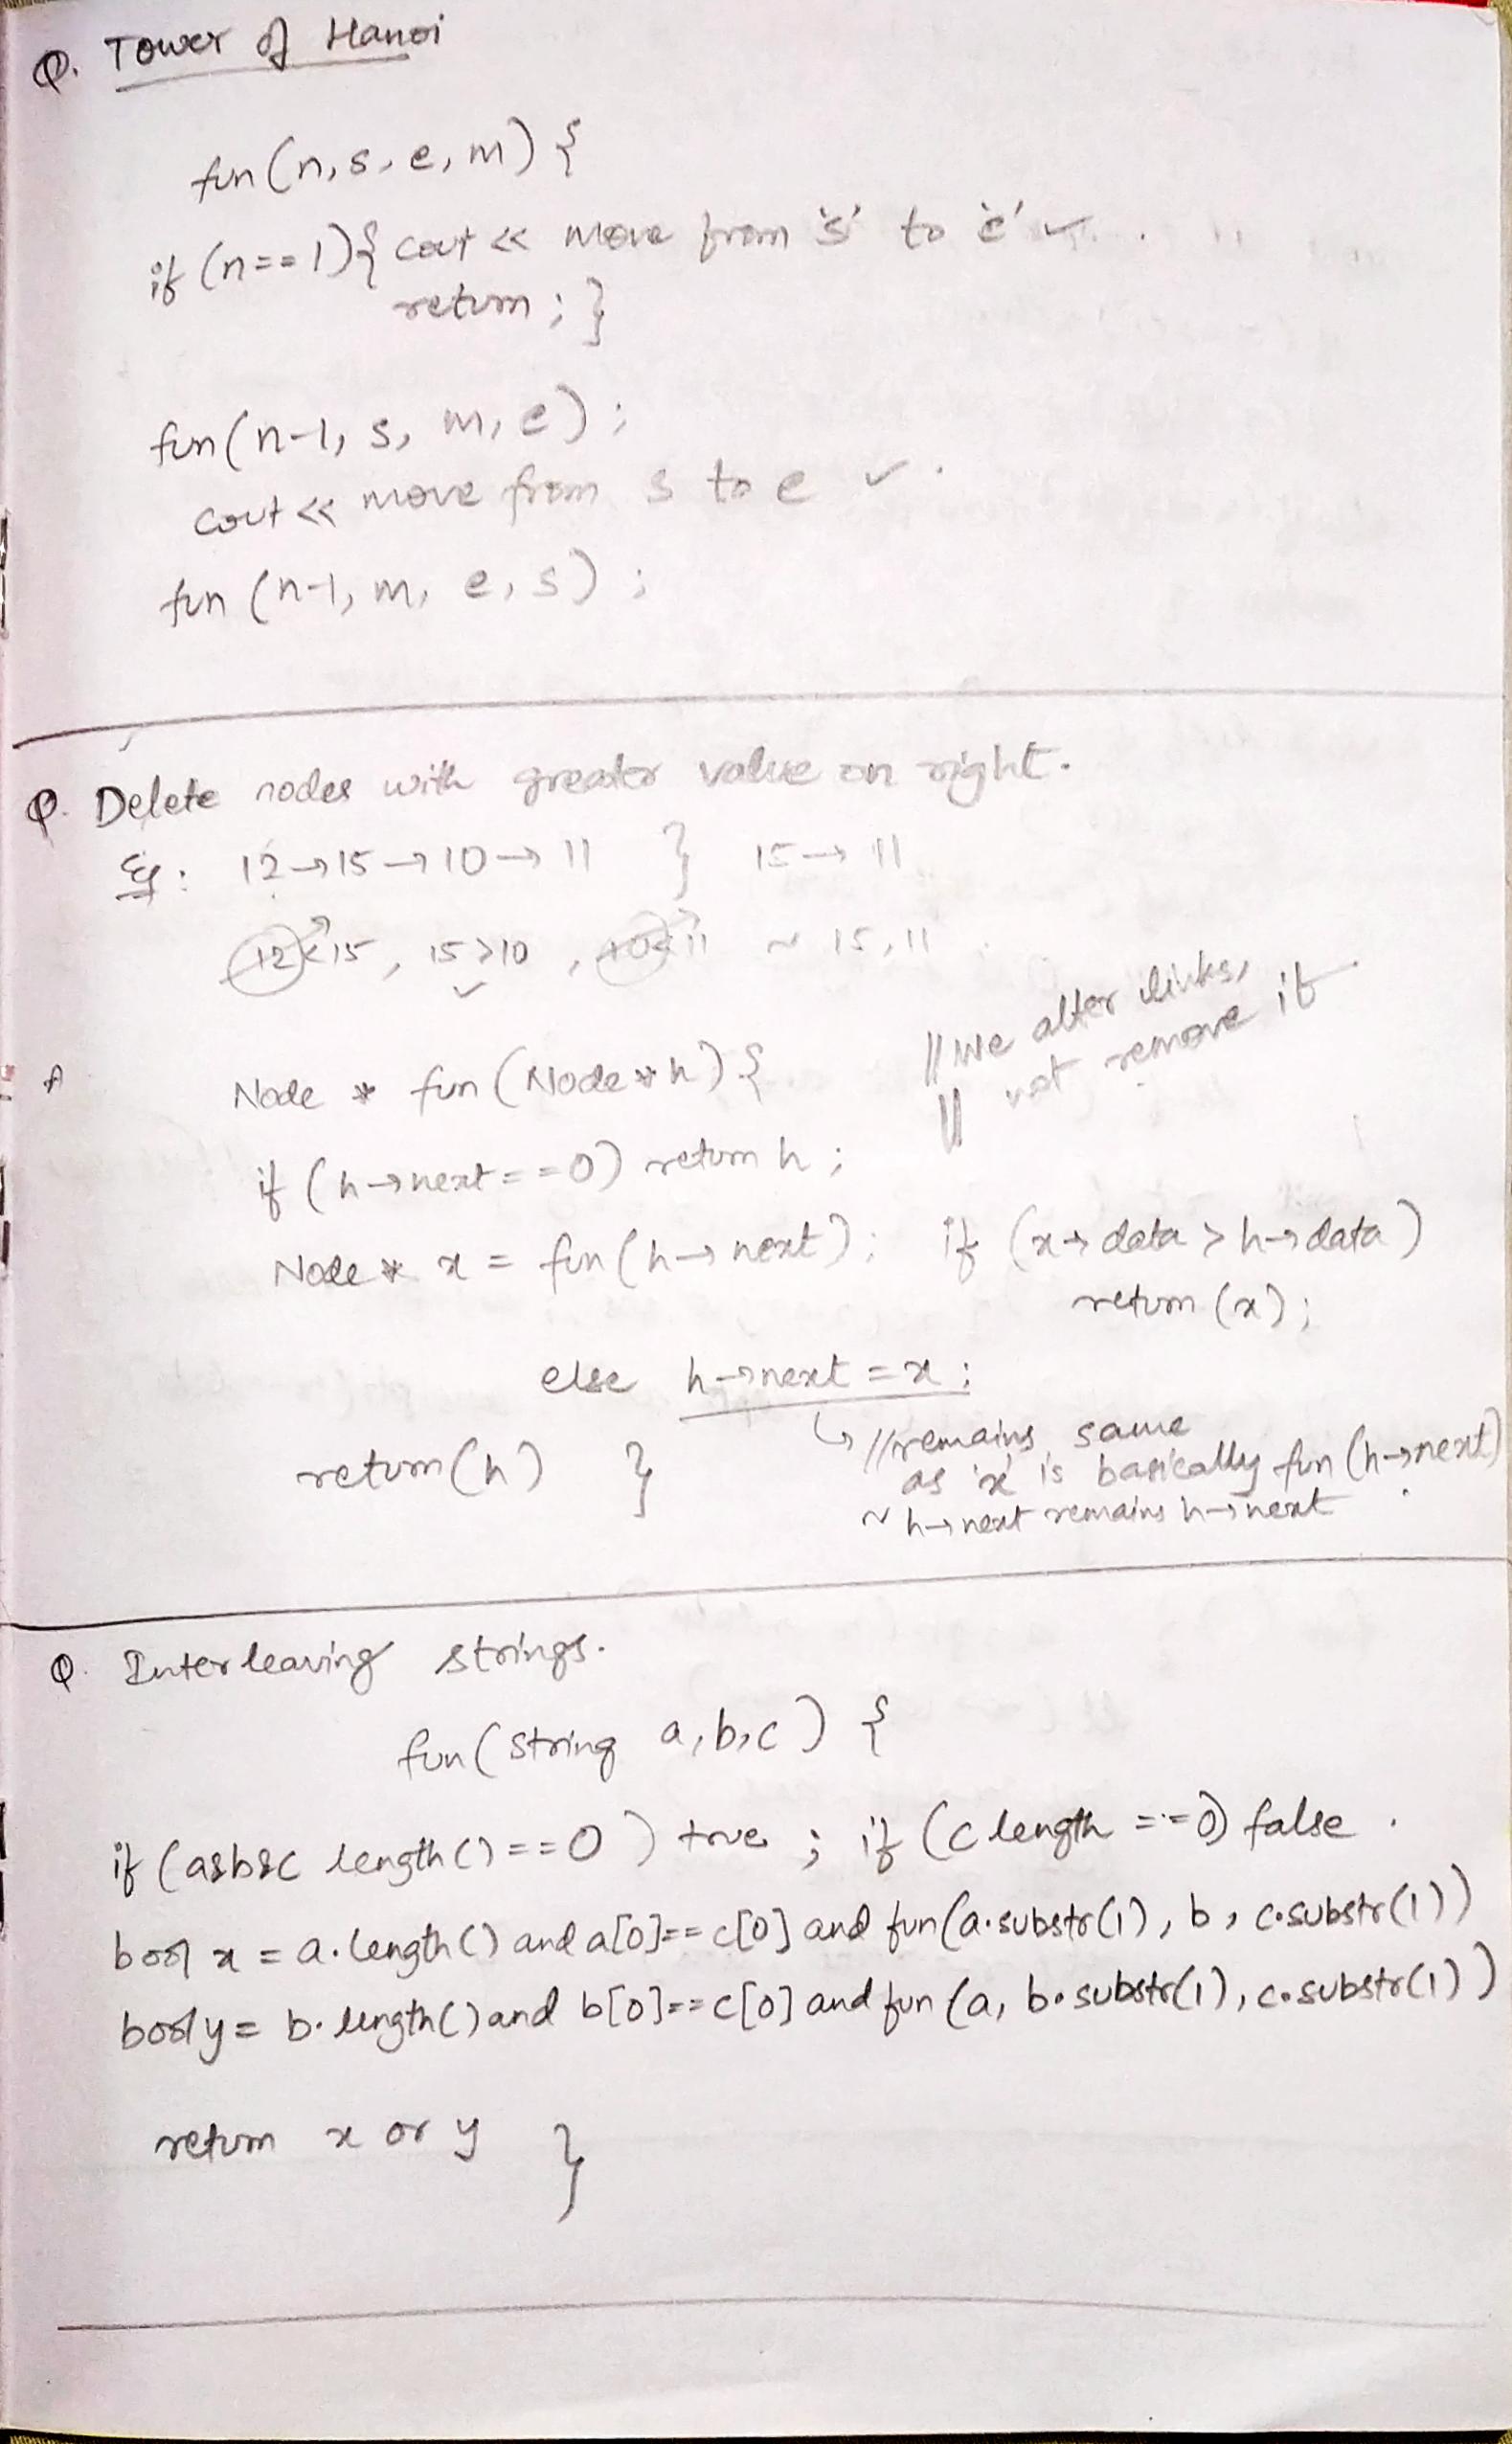 Q. Tower of Hanoi
fun (n, s, e, m) {
if (n==1) { cout << move from 's' to 'e' ✓
return ; }
fun (n-1, s, m, e) ;
cout << move from s to e ✓.
fun (n-1, m, e, s) ;
Q. Delete nodes with greater value on right.
Eg: 12→15→10→11 } 15→11
12<15, 15>10, 10<11 ~ 15, 11
✓
// We alter links,
// not remove it
Node * fun (Node * h) {
if (h→next==0) return h ;
Node * x = fun (h→next) ; if (x→data > h→data)
return (x) ;
else h→next = x ;
↳ // remains same
as 'x' is basically fun (h→next)
~ h→next remains h→next
return (h) }
Q. Interleaving strings.
fun (string a, b, c) {
if (a&b&c length() ==0) true ; if (c length ==0) false .
bool x = a.length() and a[0]==c[0] and fun(a.substr(1), b, c.substr(1))
bool y = b.length() and b[0]==c[0] and fun (a, b.substr(1), c.substr(1))
return x or y }